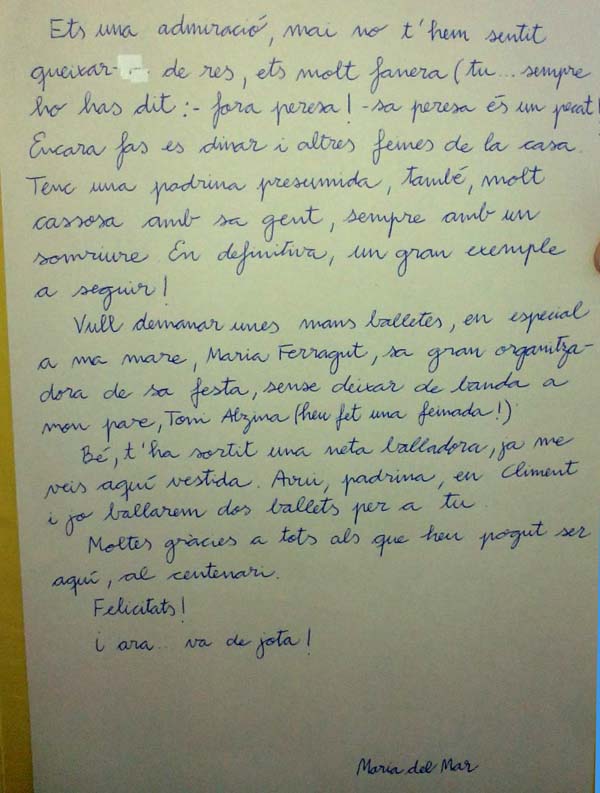 Ets una admiració, mai no t'hem sentit
queixar- de res, ets molt fanera (tu... sempre
ho has dit :- fora peresa! -sa peresa és un pecat!
Encara fas es dinar i altres feines de la casa.
Tenc una padrina presumida, també, molt
cassosa amb sa gent, sempre amb un
somriure. En definitiva, un gran exemple
a seguir!
Vull demanar unes mans balletes, en especial
a ma mare, Maria Ferragut, sa gran organitza-
dora de sa festa, sense deixar de banda a
mon pare, Tomi Alzina (heu fet una feinada!)
Bé, t'ha sortit una neta balladora, ja me
veis aquí vestida. Avui, padrina, en Climent
i jo ballarem dos ballets per a tu.
Moltes gràcies a tots als que heu pogut ser
aquí, al centenari.
Felicitats!
i ara... va de jota!
Maria del Mar